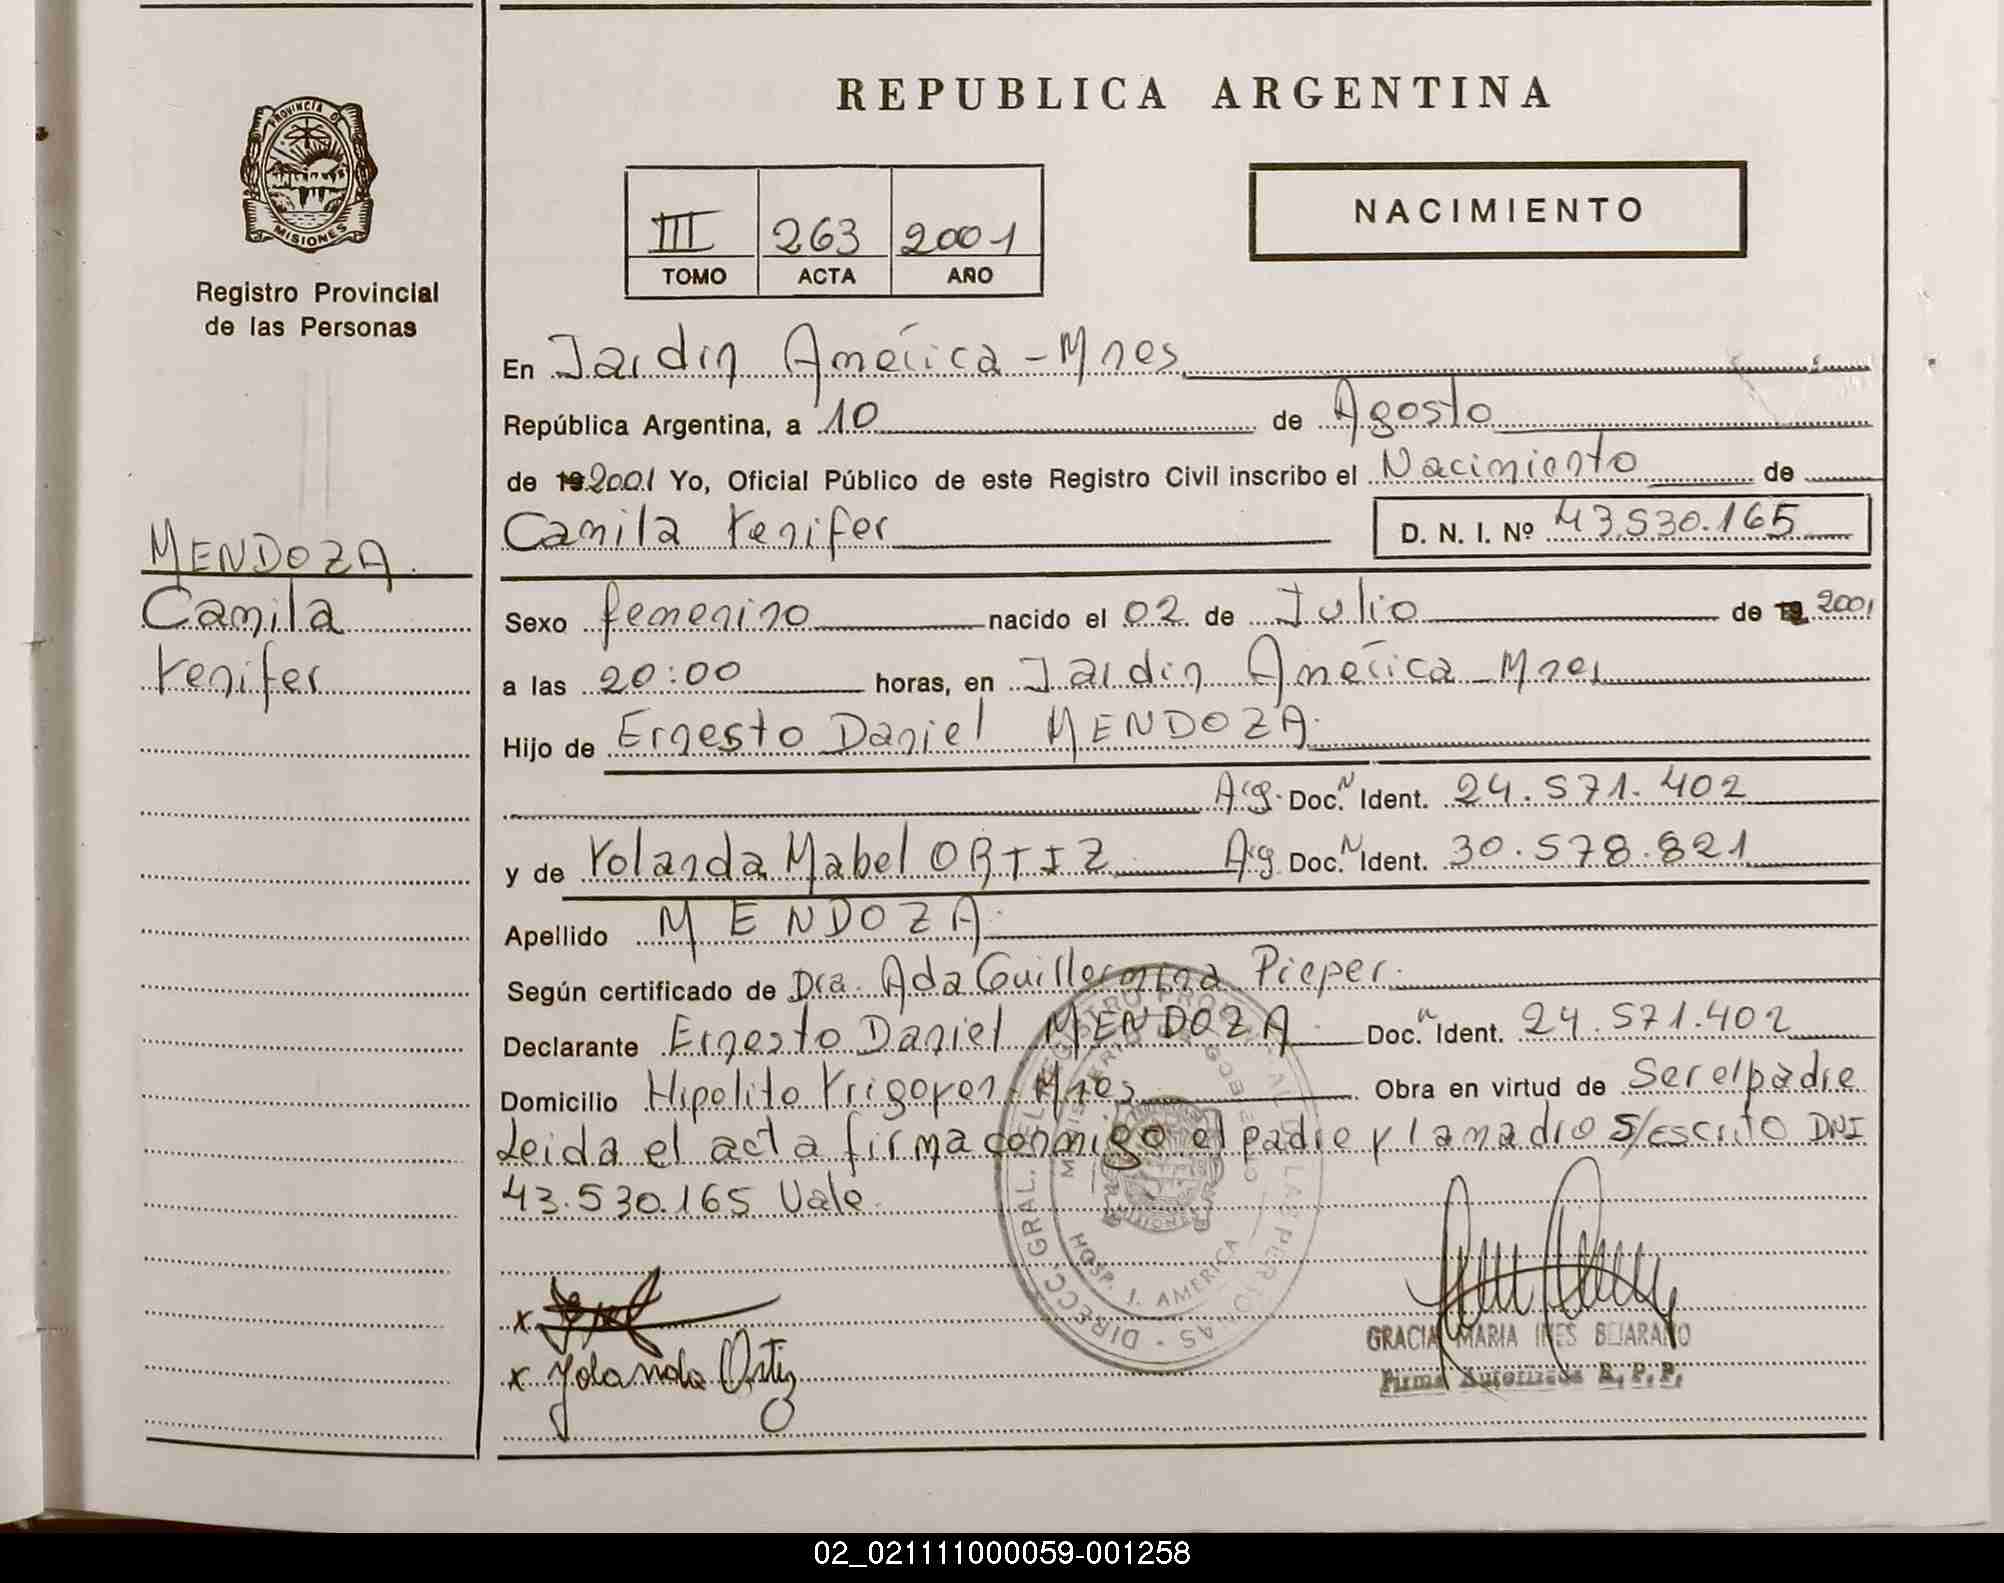 REPUBLICA ARGENTINA
PROVINCIA DE
MISIONES
Registro Provincial
de las Personas
III 263 2001
TOMO ACTA AÑO
NACIMIENTO
En Jardín América - Mnes
República Argentina, a 10 de Agosto
de 19 2001 Yo, Oficial Público de este Registro Civil inscribo el Nacimiento de
Camila Yenifer D. N. I. Nº 43.530.165
MENDOZA
Camila
Yenifer
Sexo femenino nacido el 02 de Julio de 19 2001
a las 20:00 horas, en Jardín América - Mnes
Hijo de Ernesto Daniel MENDOZA.
Arg. Doc. N Ident. 24.571.402
y de Yolanda Mabel ORTIZ Arg Doc. N Ident. 30.578.821
Apellido MENDOZA.
Según certificado de Dra. Ada Guillermina Pieper.
Declarante Ernesto Daniel MENDOZA Doc. n Ident. 24.571.402
Domicilio Hipolito Yrigoyen - Mnes Obra en virtud de Ser el padre
Leida el acta firma conmigo el padre y la madre S/escrito DNI
43.530.165 Vale.
DIRECC. GRAL. DEL REGISTRO PROVINCIAL DE LAS PERSONAS
MINISTERIO DE GOBIERNO
MISIONES
HOSP. J. AMERICA
x
x Yolanda Ortiz
GRACIA MARIA INES BEJARANO
Firma Autorizada R. P. P.
02_021111000059-001258